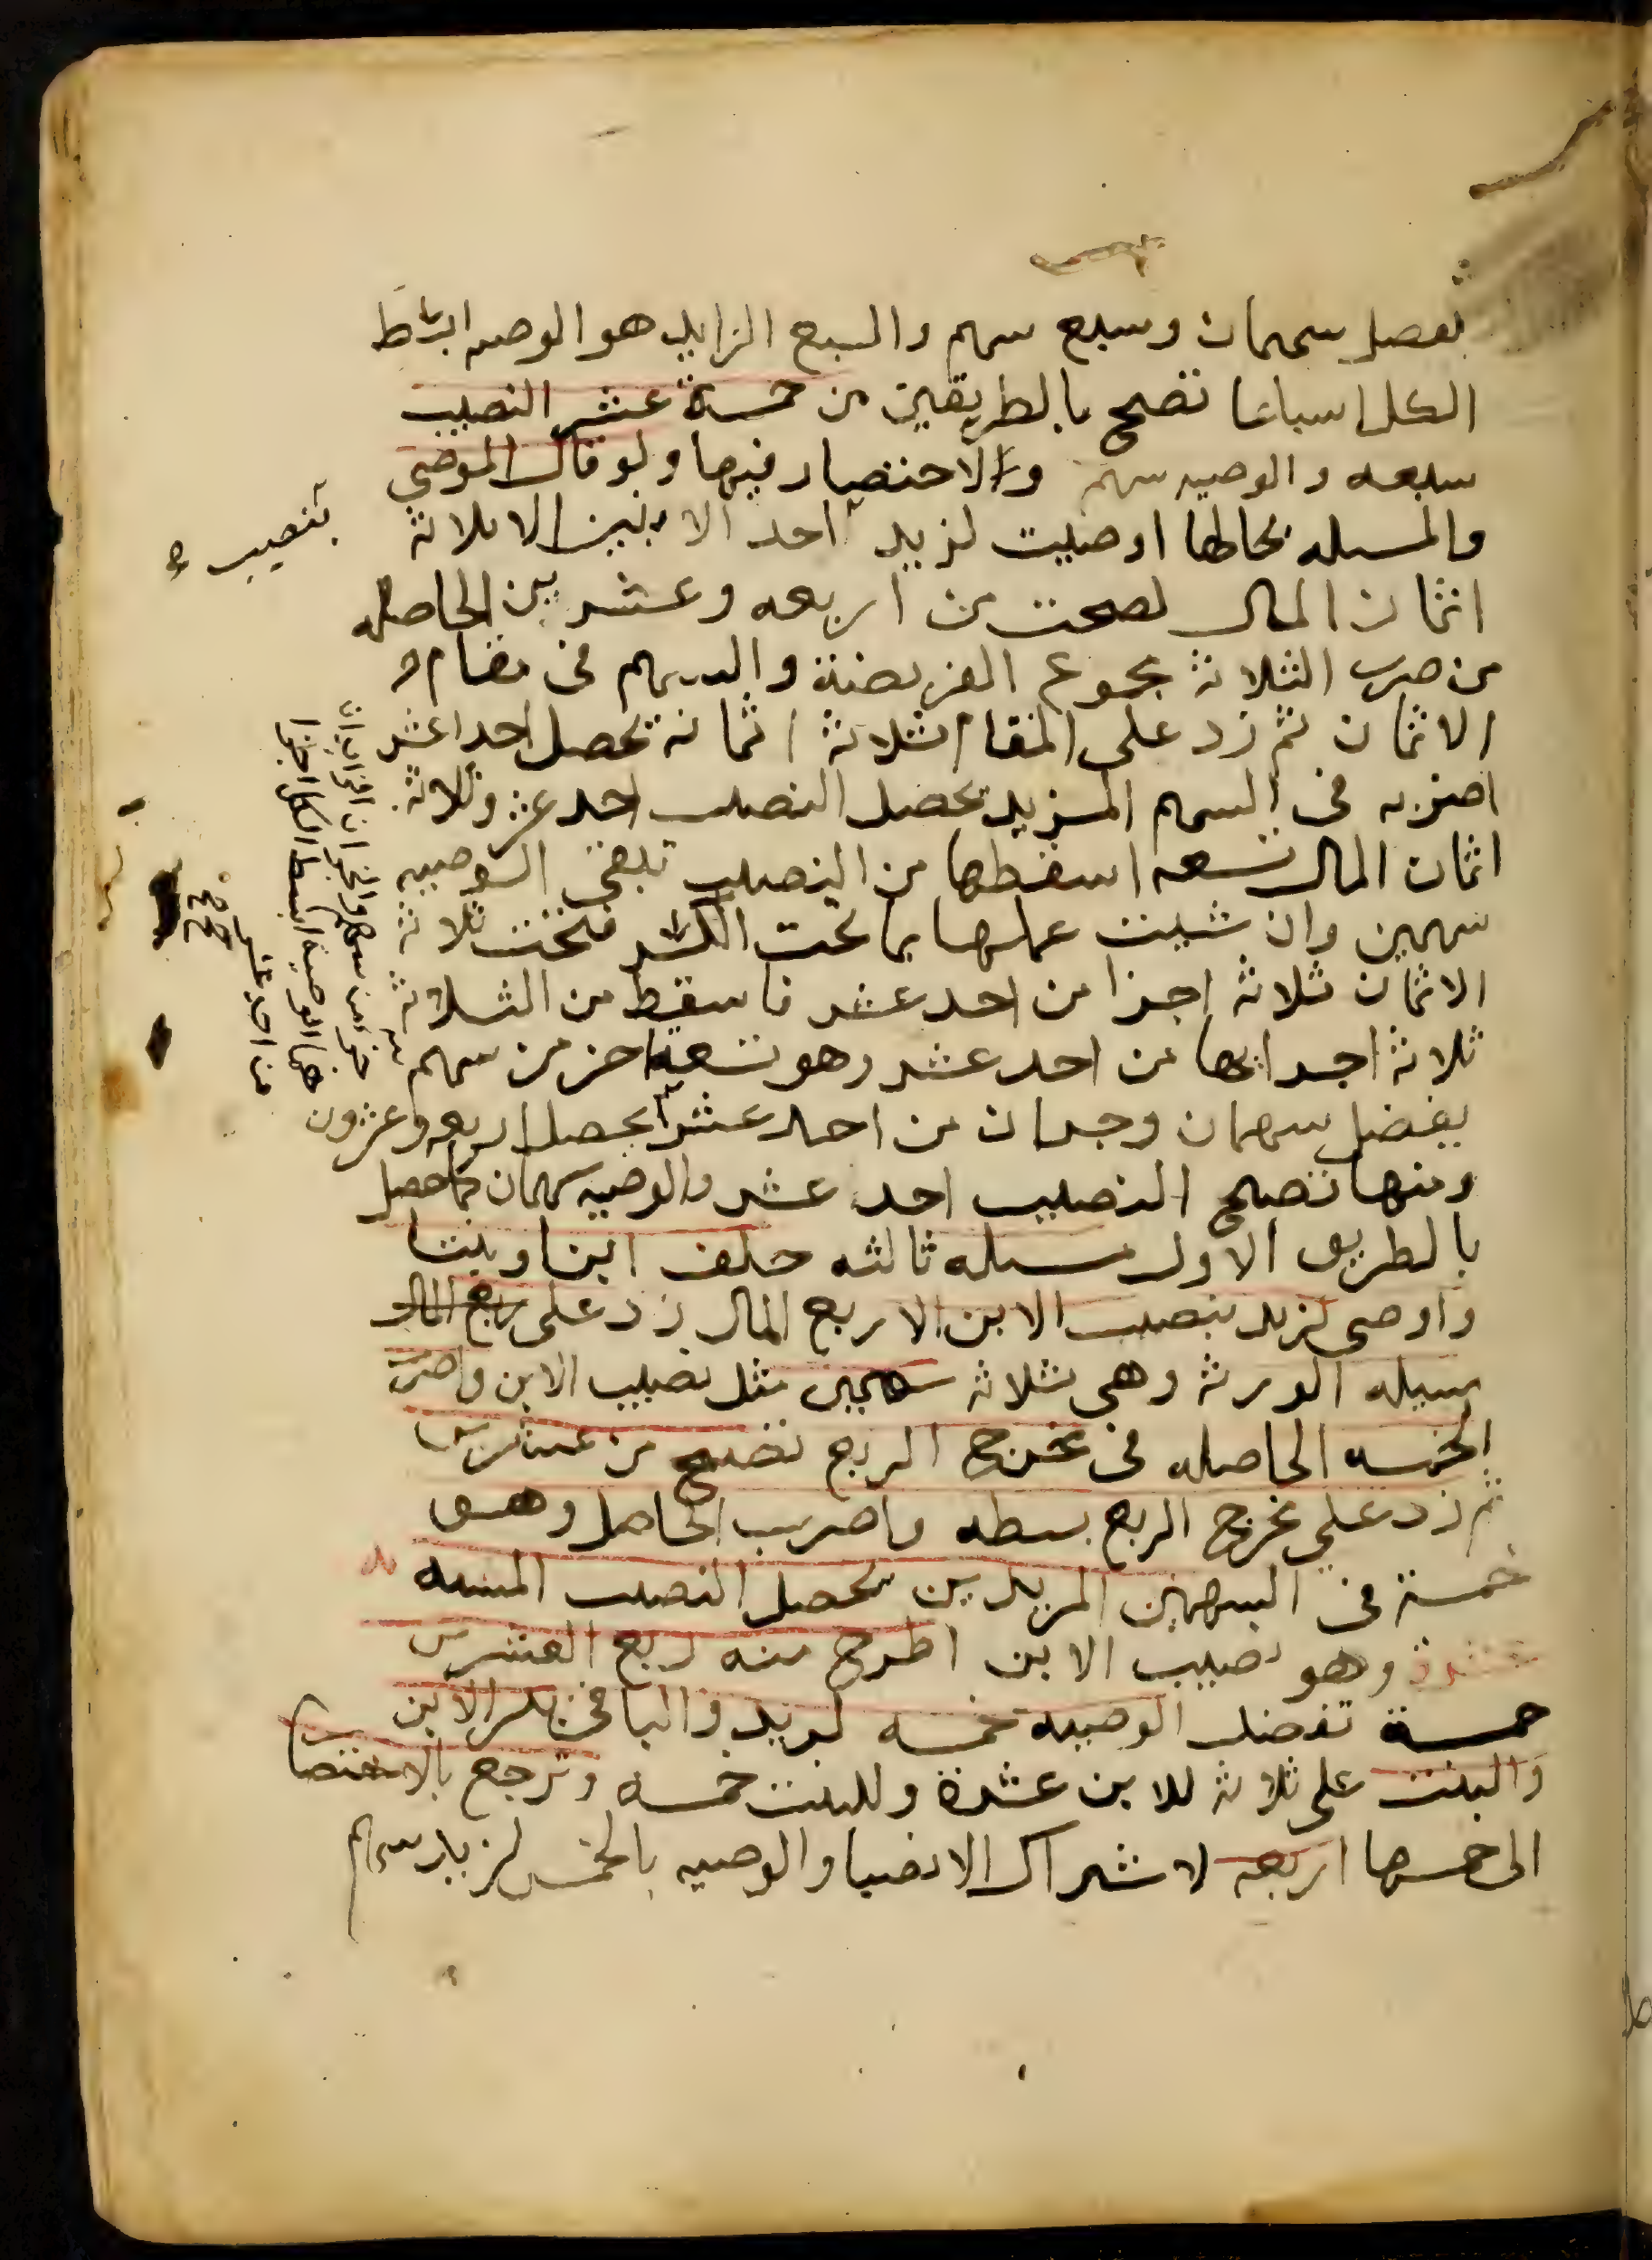 تفصل سهمان وسبع سهم والسبع الزايد هو الوصيه ابسط
الكل اسباعا تصح بالطريقين من خمسة عشر النصيب
سبعه والوصيه سهم والاختصار فيها ولو قال الموصي
والمسله بحالها اوصيت لزيد احد الابنين الا ثلاثة
بنصيب
اثمان المال لصحت من اربعه وعشرين الحاصله
من ضرب الثلاثة مجموع الفريضة والسهم فى مقام
الاثمان ثم زد على المقام ثلاثة اثمانه تحصل احد عشر
اضربه فى السهم المزيد تحصل النصيب احد عشر وثلاثة
اثمان المال تسعه اسقطها من النصيب تبقى الوصيه
سهمين وان شيت عملها بما تحت الكسر فتحت ثلاثة
الاثمان ثلاثة اجزا من احد عشر فاسقط من الثلاثة
ثلاثة اجزايها من احد عشر وهو تسعة اجز من سهم
يفضل سهمان وجزان من احد عشر يحصل اربعه وعشرون
جزؤ من سهم والجزان الزايدان
هما الوصية ابسط الكل اجزا
من احد عشر
صح
ومنها تصح النصيب احد عشر والوصيه سهمان كما حصل
بالطريق الاول مسله ثالثه خلف ابنا وبنتا
واوصى لزيد بنصيب الابن الا ربع المال زد على ربع المال
مسيله الورثة وهى ثلاثة سهمين مثل نصيب الابن واضرب
الخمسه الحاصله فى مخرج الربع تصح من عشرين
ثم زد على مخرج الربع بسطه واضرب الحاصل وهو
خمسة فى السهمين المزيدين تحصل النصيب المشبه به
عشرة وهو نصيب الابن اطرح منه ربع العشرين
خمسة تفضل الوصيه خمسه لزيد والباقى بين الابن
والبنت على ثلاثة للابن عشرة وللبنت خمسه وترجع بالاختصار
الى خمسها اربعه لاشتراك الانصبا والوصيه بالخمس لزيد سهم